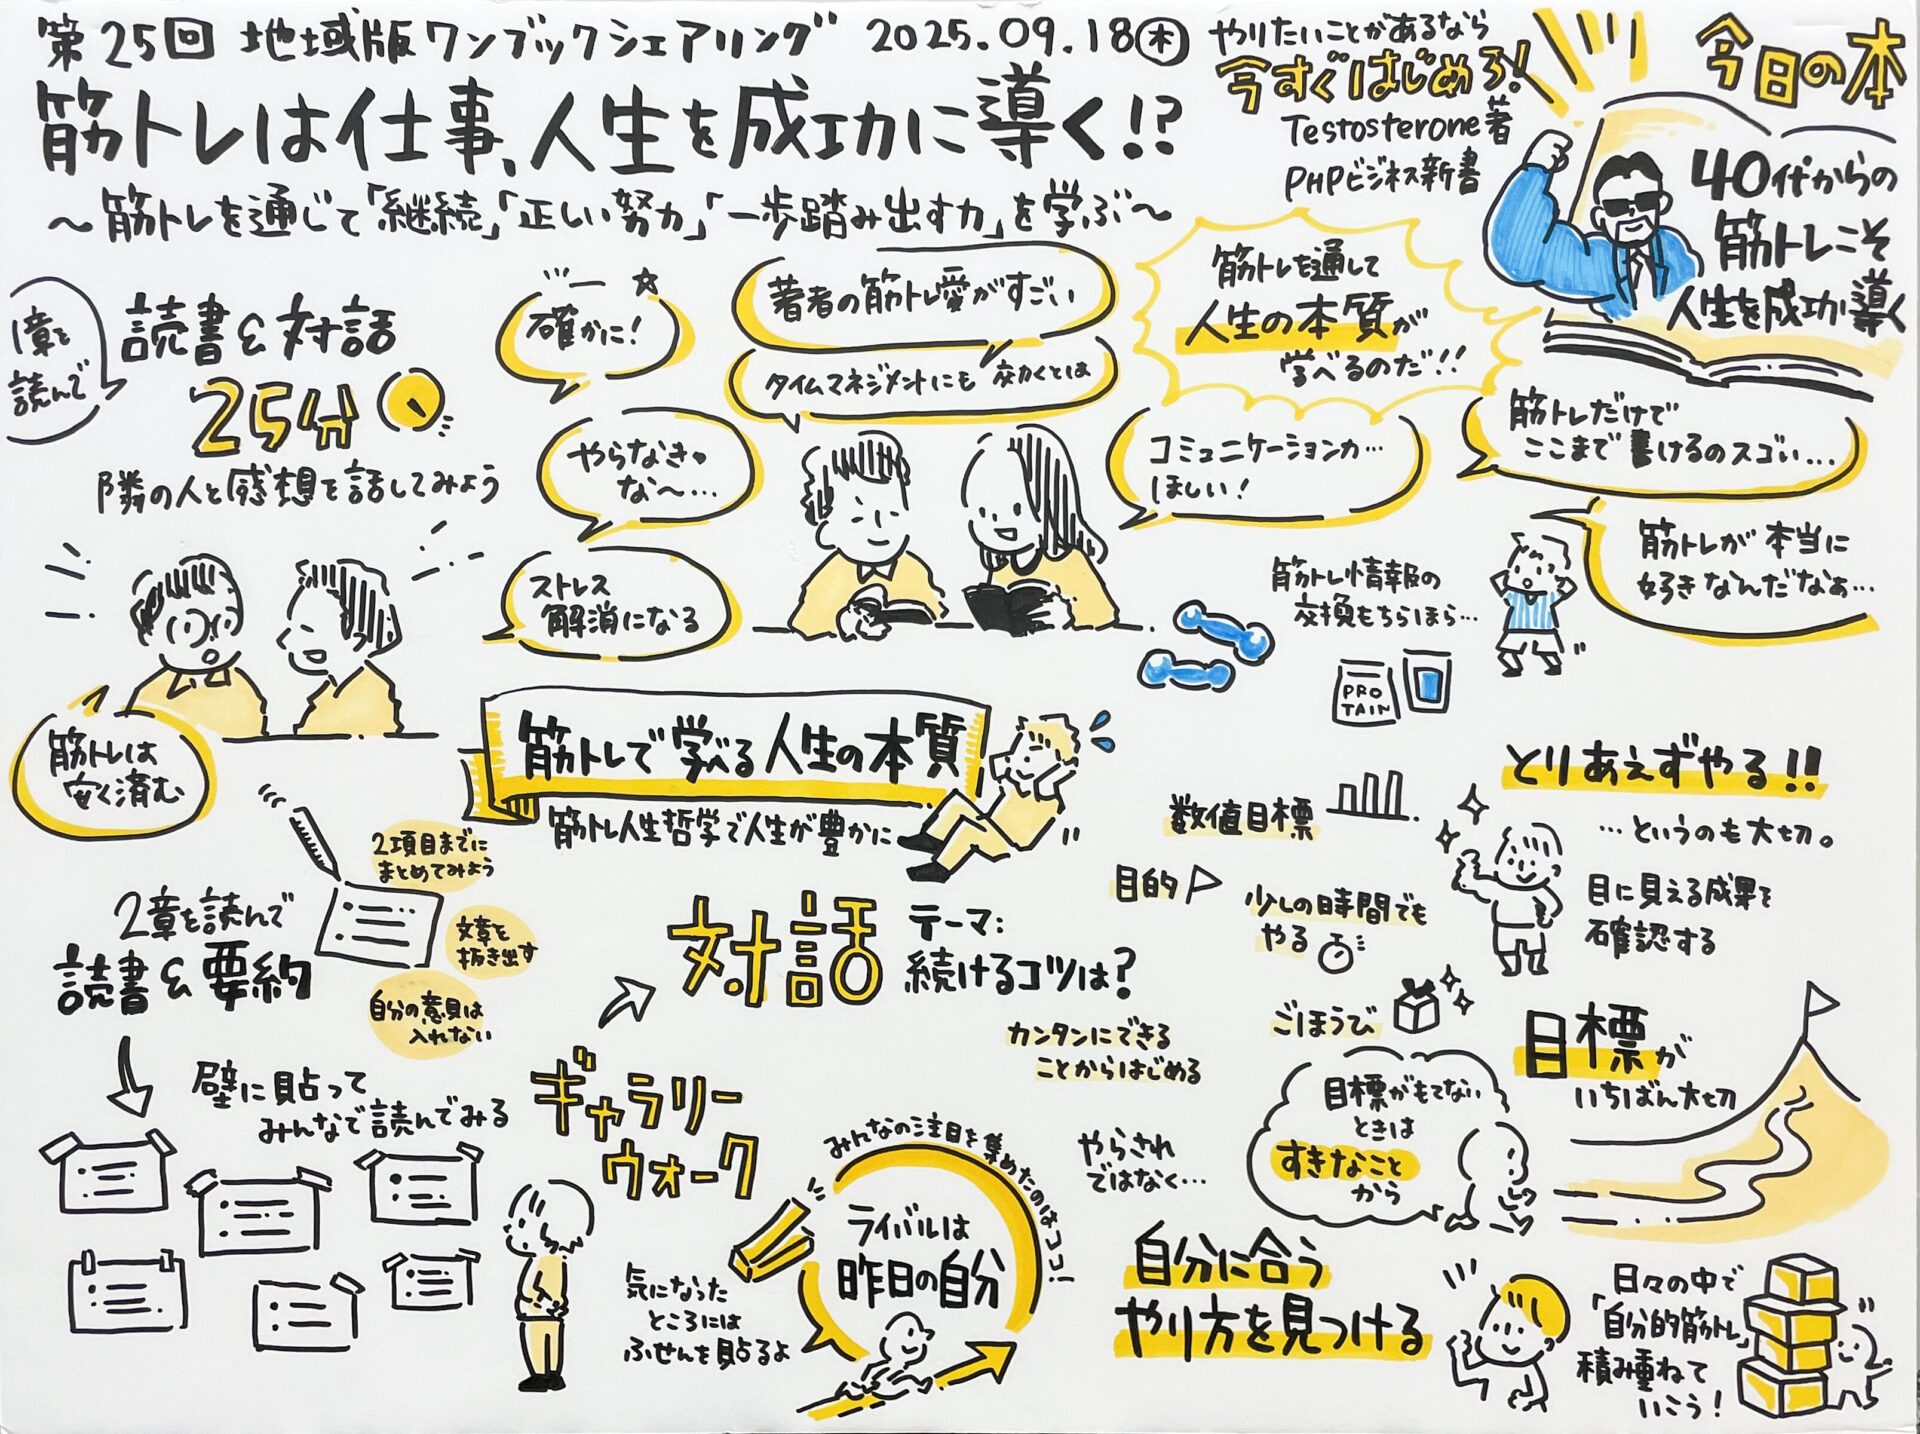 第25回 地域版ワンブックシェアリング 2025.09.18㊍
筋トレは仕事、人生を成功に導く!?
〜筋トレを通じて「継続」「正しい努力」「一歩踏み出す力」を学ぶ〜
やりたいことがあるなら
今すぐはじめろ!
Testosterone著
PHPビジネス新書
今日の本
40代からの
筋トレこそ
人生を成功に導く
1章を
読んで
読書&対話
25分
隣の人と感想を話してみよう
確かに!
著者の筋トレ愛がすごい
タイムマネジメントにも効くとは
やらなきゃ
な〜…
ストレス
解消になる
筋トレを通して
人生の本質が
学べるのだ!!
コミュニケーション力…
ほしい!
筋トレだけで
ここまで書けるのスゴい…
筋トレが本当に
好きなんだなぁ…
筋トレ情報の
交換もちらほら…
PRO
TAIN
筋トレは
安く済む
筋トレで学べる人生の本質
筋トレ人生哲学で人生が豊かに
2章を読んで
読書&要約
2項目までに
まとめてみよう
文章を
抜き出す
自分の意見は
入れない
壁に貼って
みんなで読んでみる
ギャラリー
ウォーク
気になった
ところには
ふせんを貼るよ
対話
テーマ:
続けるコツは?
数値目標
目的
少しの時間でも
やる
ごほうび
カンタンにできる
ことからはじめる
とりあえずやる!!
…というのも大切。
目に見える成果を
確認する
目標が
いちばん大切
目標がもてない
ときは
すきなこと
から
みんなの注目を集めたのはココ!
ライバルは
昨日の自分
やらされ
ではなく…
自分に合う
やり方を見つける
日々の中で
「自分的筋トレ」
積み重ねて
いこう!